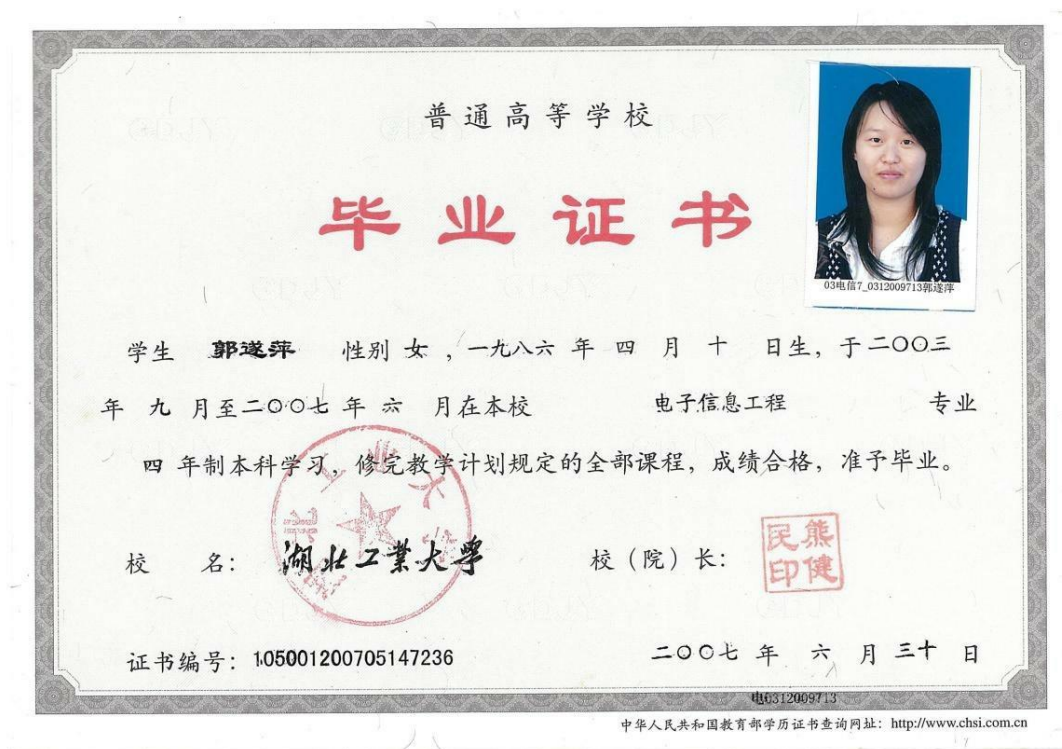 普通高等学校
毕业证书
03电信7_0312009713郭遂萍
学生 郭遂萍 性别 女 ，一九八六 年 四 月 十 日生，于二〇〇三
年 九 月至二〇〇七 年 六 月在本校 电子信息工程 专业
四 年制本科学习，修完教学计划规定的全部课程，成绩合格，准予毕业。
校 名： 湖北工業大學 校（院）长： 熊健民印
湖北工业大学
证书编号：105001200705147236 二〇〇七 年 六 月 三十 日
电0312009713
中华人民共和国教育部学历证书查询网址：http://www.chsi.com.cn